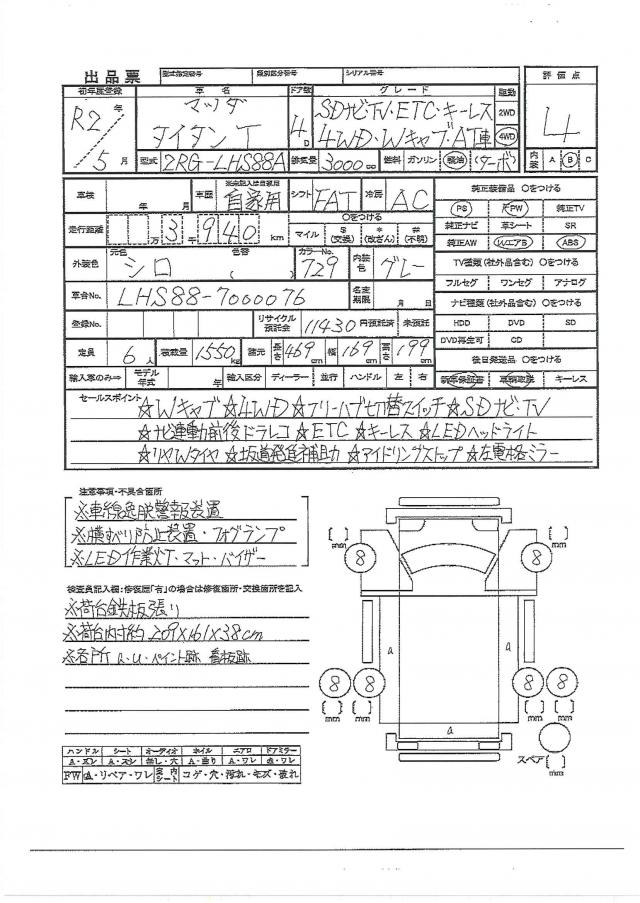 出品票 型式指定番号 類別区分番号 シリアル番号
初年度登録 車名 ドア数 グレード 駆動 評価点
R2年 マツダ 4D SDナビ・TV・ETC・キーレス 2WD 4
5月 タイタンT 4WD・Wキャブ・AT車 4WD
型式 2RG-LHS88A 排気量 3000cc 燃料 ガソリン 軽油 (ターボ) 内装 A B C
車検 年 月 車歴 自家用 シフト FAT 冷房 AC 純正装備品 〇をつける
PS PW 純正TV
走行距離 万 3 千 940 km 〇をつける 純正ナビ 革シート SR
マイル $(交換) *(改ざん) #(不明) 純正AW WエアB ABS
外装色 元色 シロ 色替 カラーNo. 729 内装色 グレー TV種類(社外品含む) 〇をつける
フルセグ ワンセグ アナログ
車台No. LHS88-7000076 名変期限 月 日 ナビ種類(社外品含む) 〇をつける
登録No. リサイクル預託金 11430 円預託済 未預託 HDD DVD SD
DVD再生可 CD
定員 6人 積載量 1550kg 諸元 長さ 469cm 幅 169cm 高さ 199cm 後日発送品 〇をつける
輸入車のみ⇒ モデル年式 年 輸入区分 ディーラー 並行 ハンドル 左 右 新車保証書 車輌取説 キーレス
セールスポイント
☆Wキャブ ☆4WD ☆フリーハブ切替スイッチ ☆SDナビ・TV
☆ナビ連動前後ドラレコ ☆ETC ☆キーレス ☆LEDヘッドライト
☆リヤWタイヤ ☆坂道発進補助 ☆アイドリングストップ ☆左電格ミラー
注意事項・不具合箇所
※車線逸脱警報装置
※横すべり防止装置・フォグランプ
※LED作業灯・マット・バイザー
検査員記入欄:修復歴「有」の場合は修復箇所・交換箇所を記入
※荷台鉄板張り
※荷台内寸約209×161×38cm
※各所 A・U・ペイント跡 看板跡
[ ] mm 8 8 [ ] mm
a a
8 8 8 8
[ ] mm [ ] mm a [ ] mm [ ] mm
スペア [ ] mm
ハンドル シート オーディオ ホイル エアロ ドアミラー
A・ズレ A・スレ 無し・穴 A・曲り A・ワレ A・ワレ
FW A・リペア・ワレ 室内シート コゲ・穴・汚れ・キズ・破れ